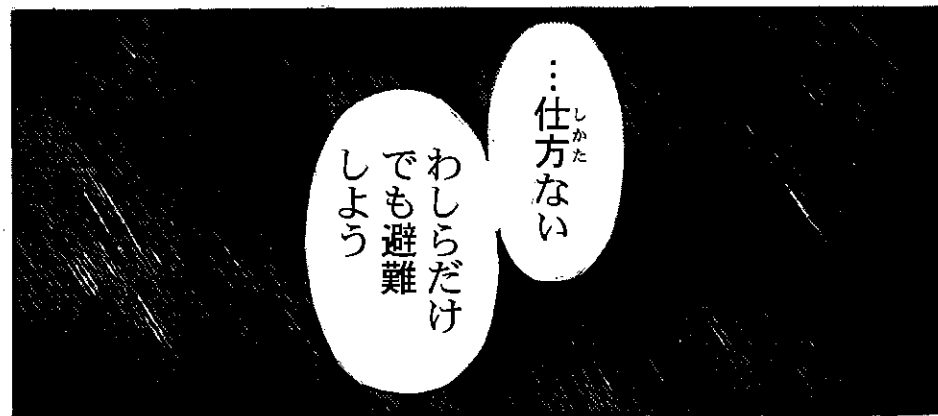 …仕方ない
わしらだけ
でも避難
しよう